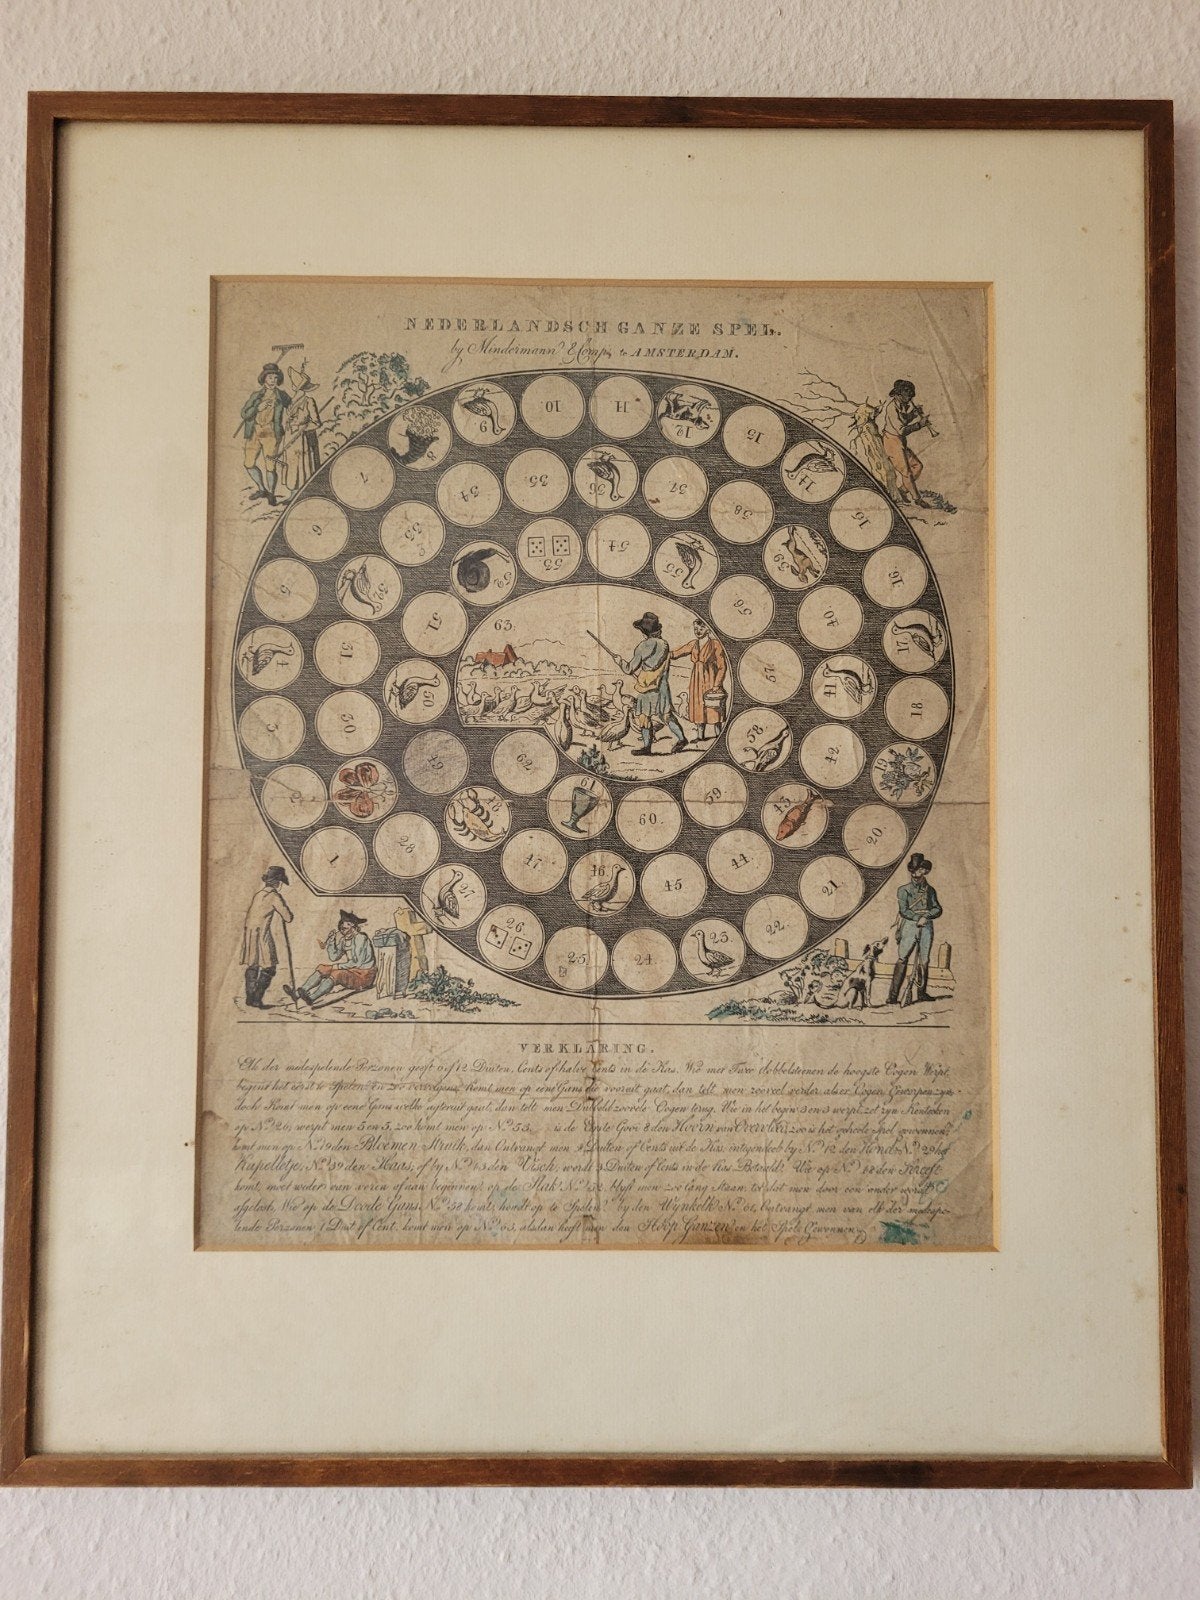 NEDERLANDSCH GANZE SPEL.
by Mindermann & Comp. te AMSTERDAM.
1
2
3
4
5
6
7
8
9
10
11
12
13
14
15
16
17
18
19
20
21
22
23
24
25
26
27
28
30
31
32
33
34
35
36
37
38
39
40
41
42
43
44
45
46
47
48
49
50
51
52
53
54
55
56
57
58
59
60
61
62
63
VERKLARING.
Elk der medespelende Perzonen geeft 6 of 12 Duiten, Cents of halve Cents in de Kas. Wie met Twee dobbelsteenen de hoogste Oogen Werpt,
begint het eerst te Spelen en zoo vervolgens. Komt men op eene Gans die vooruit gaat, dan telt men zooveel verder als er Oogen Geworpen zyn,
doch Komt men op eene Gans welke agteruit gaat, dan telt men Dubbeld zooveele Oogen terug. Wie in het begin 3 en 3 werpt, zet zyn Kenteeken
op No. 26, werpt men 5 en 5, zoo komt men op No. 53. is de Eerste Gooi 8 den Hoorn van Overvloed, zoo is het geheele Spel gewonnen,
komt men op No. 19 den Bloemen Struik, dan Ontvangt men Duiten of Cents uit de Kas, integendeel by No. 12 den Hond, No. 29 het
Kapelletje, No. 39 den Haas, of by No. 43 den Visch, wordt 3 Duiten of Cents in de Kas Betaald. Wie op No. 48 den Kreeft
komt, moet weder van voren af aan beginnen, op de Slak No. 52, blyft men zoo lang Staan, tot dat men door een ander wordt
afgelost, Wie op de Doode Gans, No. 58 komt, houdt op te Spelen, by den Wynkelk No. 61, Ontvangt men van elk der medespe-
lende Perzonen 1 Duit of Cent. komt men op No. 63, alsdan heeft men den Hoop Ganzen en het Spel Gewonnen.